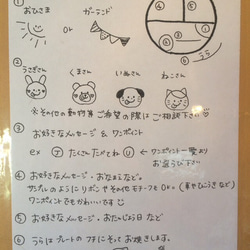 ①
おひさま
or
ガーランド
① ② ③ ④ ⑤
うら
②
うさぎさん くまさん いぬさん ねこさん
※その他の動物等ご希望の際はご相談下さい♡
③ お好きなメッセージ & ワンポイント
ex J たくさんたべてね U ← ワンポイント一覧より
お選び下さい
④ お好きなメッセージ・お名前など。
サンプルのようにリボンやその他モチーフもOK。(車やひこうきなど)
ワンポイントでもかわいいです♡
⑤ お好きなメッセージ、おたんじょう日など
⑥ うらはプレートのフチにそってお焼きします。